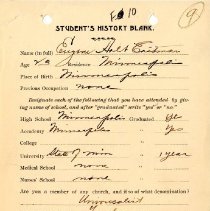 10
9
STUDENT'S HISTORY BLANK.
Name (in full) Eugene Holt Eastman
Age Residence Minneapolis
Place of Birth Minneapolis
Previous Occupation none
Designate each of the following that you have attended by giving name of school, and after "graduated" write "yes" or "no."
High School Minneapolis Graduated
Academy Minneapolis
College
University State of Minn 1 year
Medical School none
Normal School none
Are you a member of any church, and if so what denomination?
Universalist